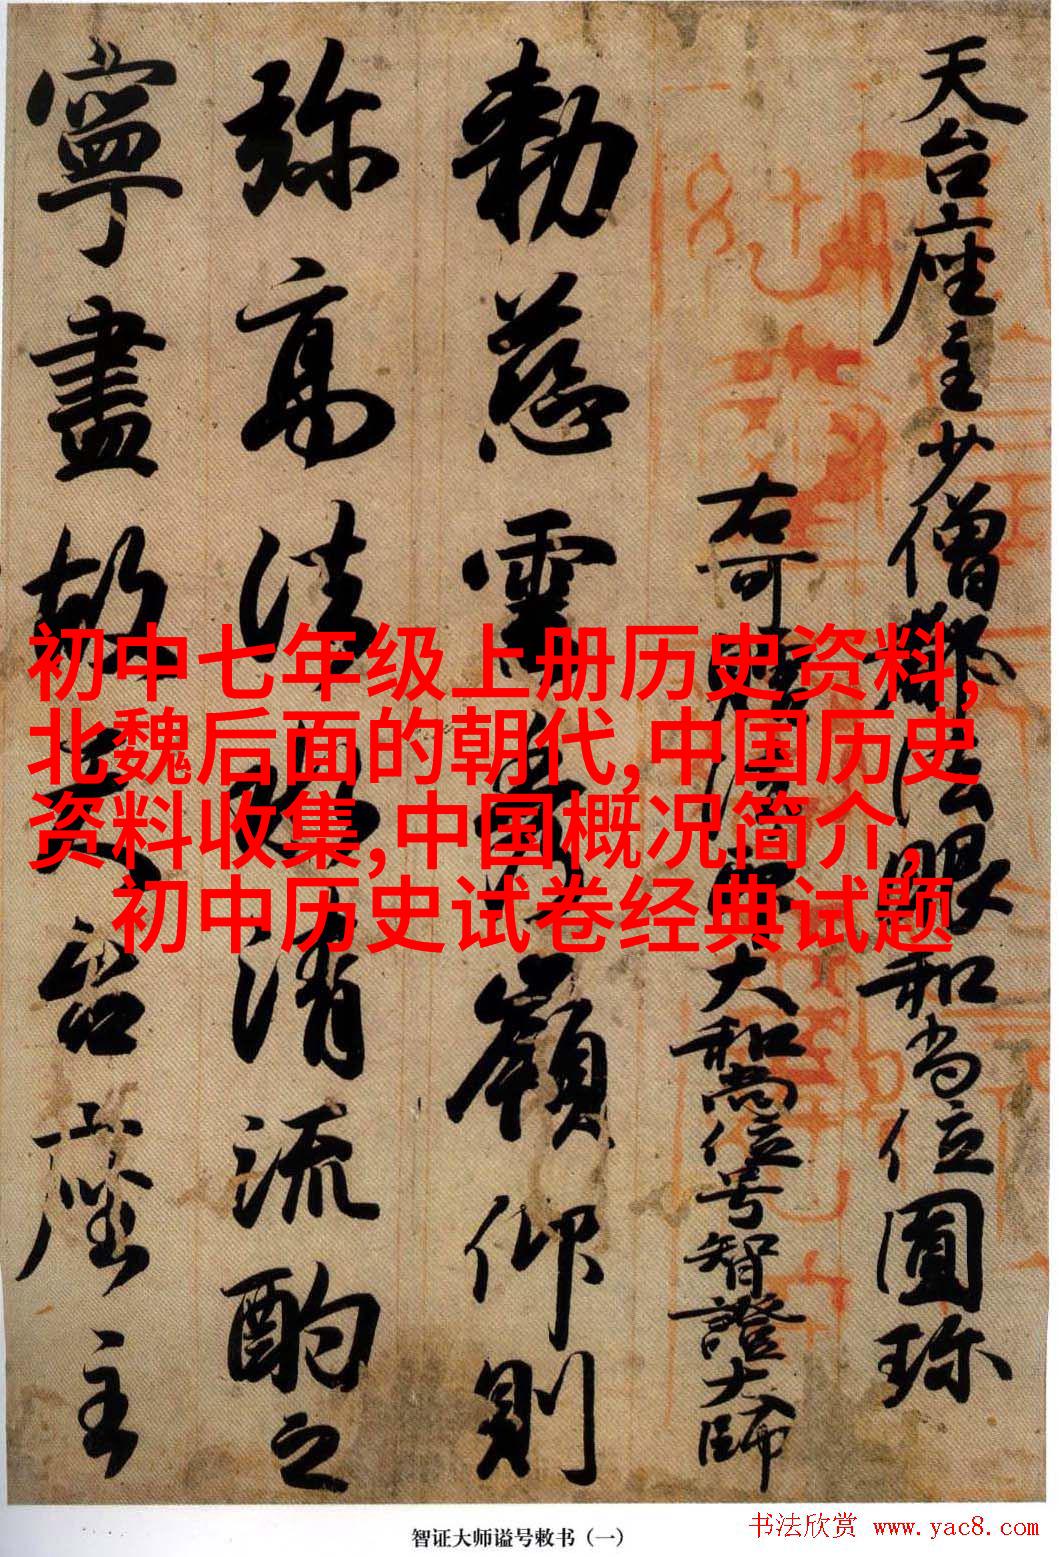 天台座主少僧都法眼和尚位圓珎
右可贈法印大和尚位号智證大師
勅慈雲秀嶺仰則
弥高法海清流酌之
寧盡故天台座主
初中七年级上册历史资料,
北魏后面的朝代,中国历史
资料收集,中国概况简介,
初中历史试卷经典试题
智证大师谥号敕书（一）
书法欣赏 www.yac8.com